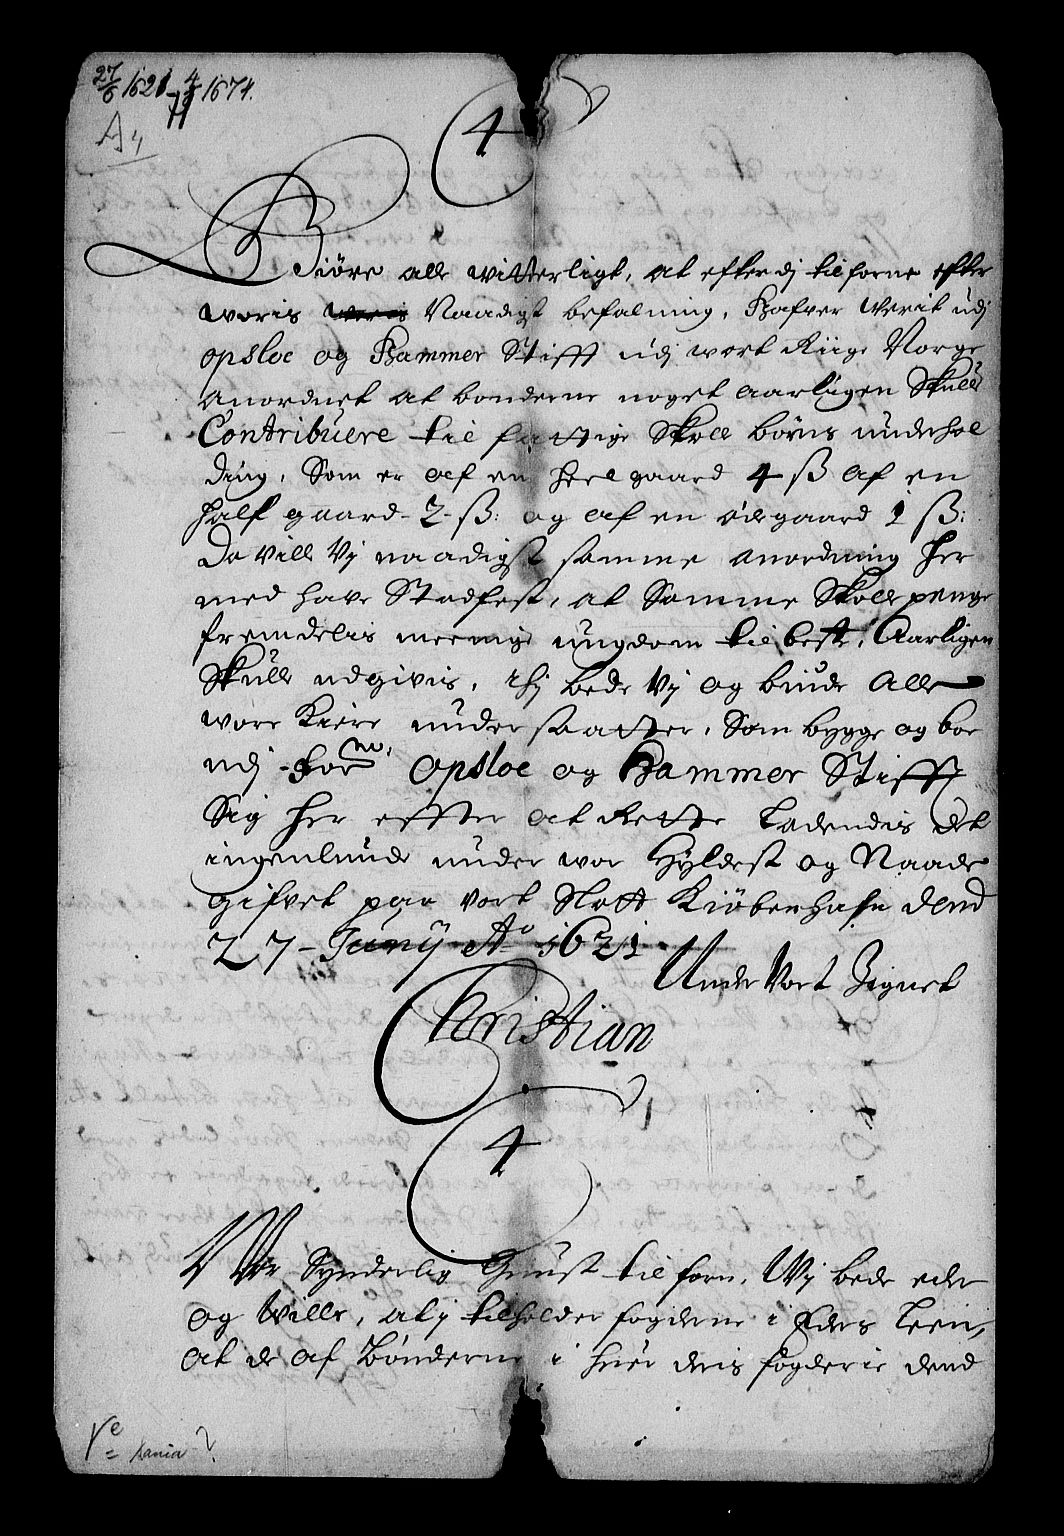 27/6 1621 - 4/11 1674.
A 4
C 4
Giöre alle witterligt, at efterdj tilforne efter
woris woris Naadigst befalning, Hafver werit udj
opsloe og Hammer Stifft udj wort Riige Norge
anordnet at bønderne noget aarligen Skulle
Contribuere til fattige Skole börns underhol
ding, Som er af en heel gaard 4 ß af en
half gaard 2 ß: og af en ödegaard 1 ß:
Da ville Vj naadigst samme anordning her
med have Stadfest, at Samme Skole penge
fremdelis meenige ungdom til beste, Aarligen
Skulle udgivis, thj bede Vj og biude Alle
wore Kiere undersaatter, Som bygge og boe
udj forne. opsloe og Hammer Stifft
Sig her effter at Rette Ladendis det
ingenlunde under wor Hyldest og Naade
gifvet paa Vort Slott Kiöbenhafn dend
27 Junij Ao 1621
Under Vort Zignet
Christian
C 4
Wor Synderlig Gunst tilforn, Wj bede eder
og Wille, at j tilholder fogderne i Eders Leen,
at de af Bønderne i huer deris fogderie dend